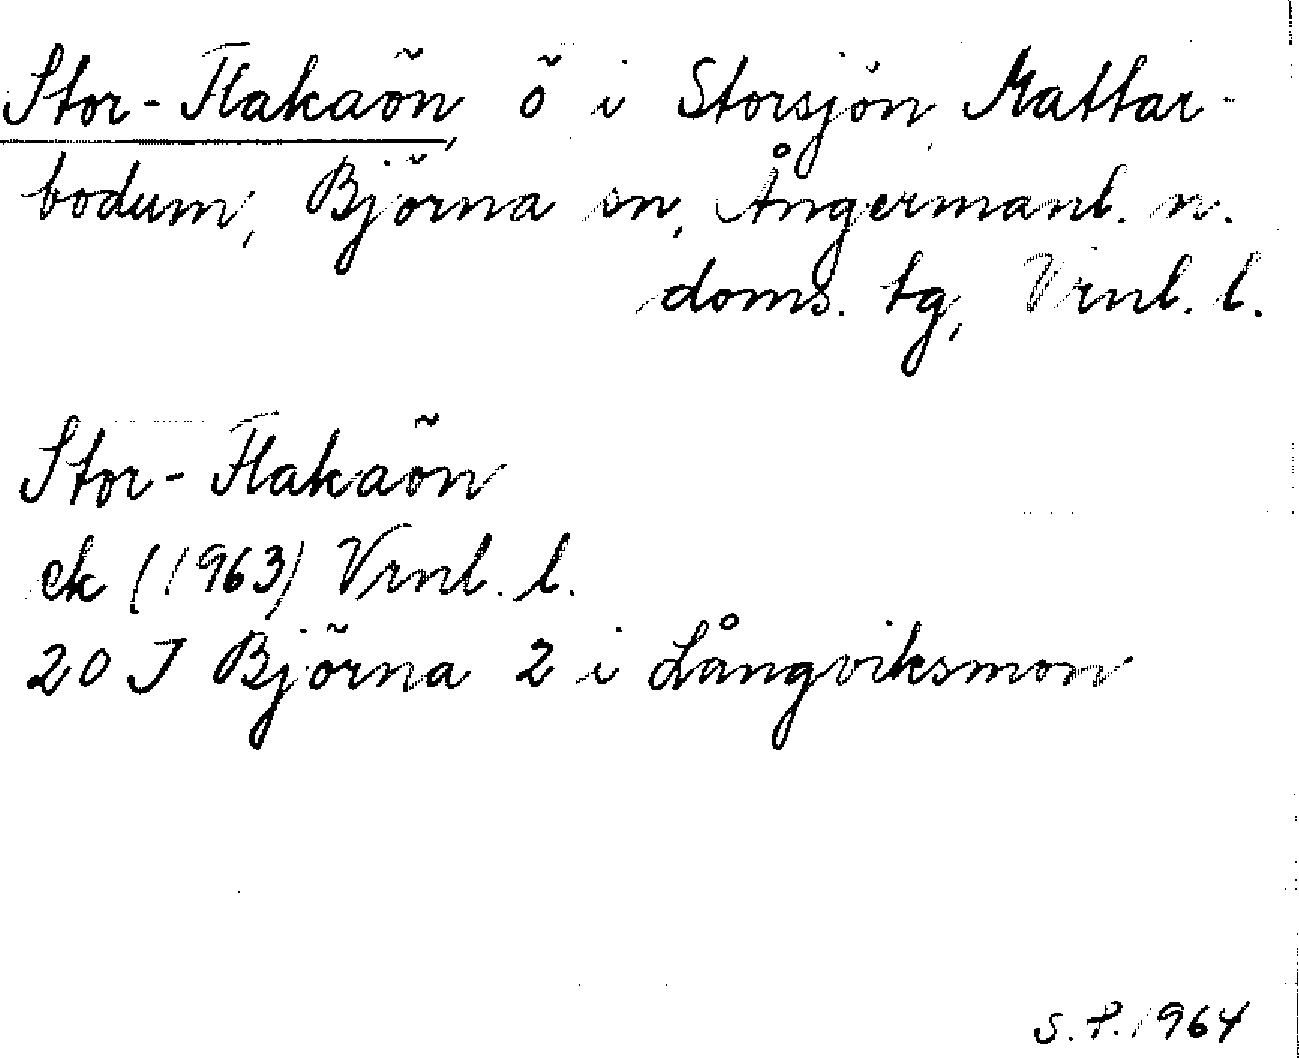 Stor-Flakaön, ö i Storsjön, Mattar-
bodum, Björna sn, Ångermanl. n.
doms. tg, Vrnl. l.
Stor-Flakaön
ek (1963) Vrnl. l.
20 J Björna 2 i Långviksmon
S. P. 1964